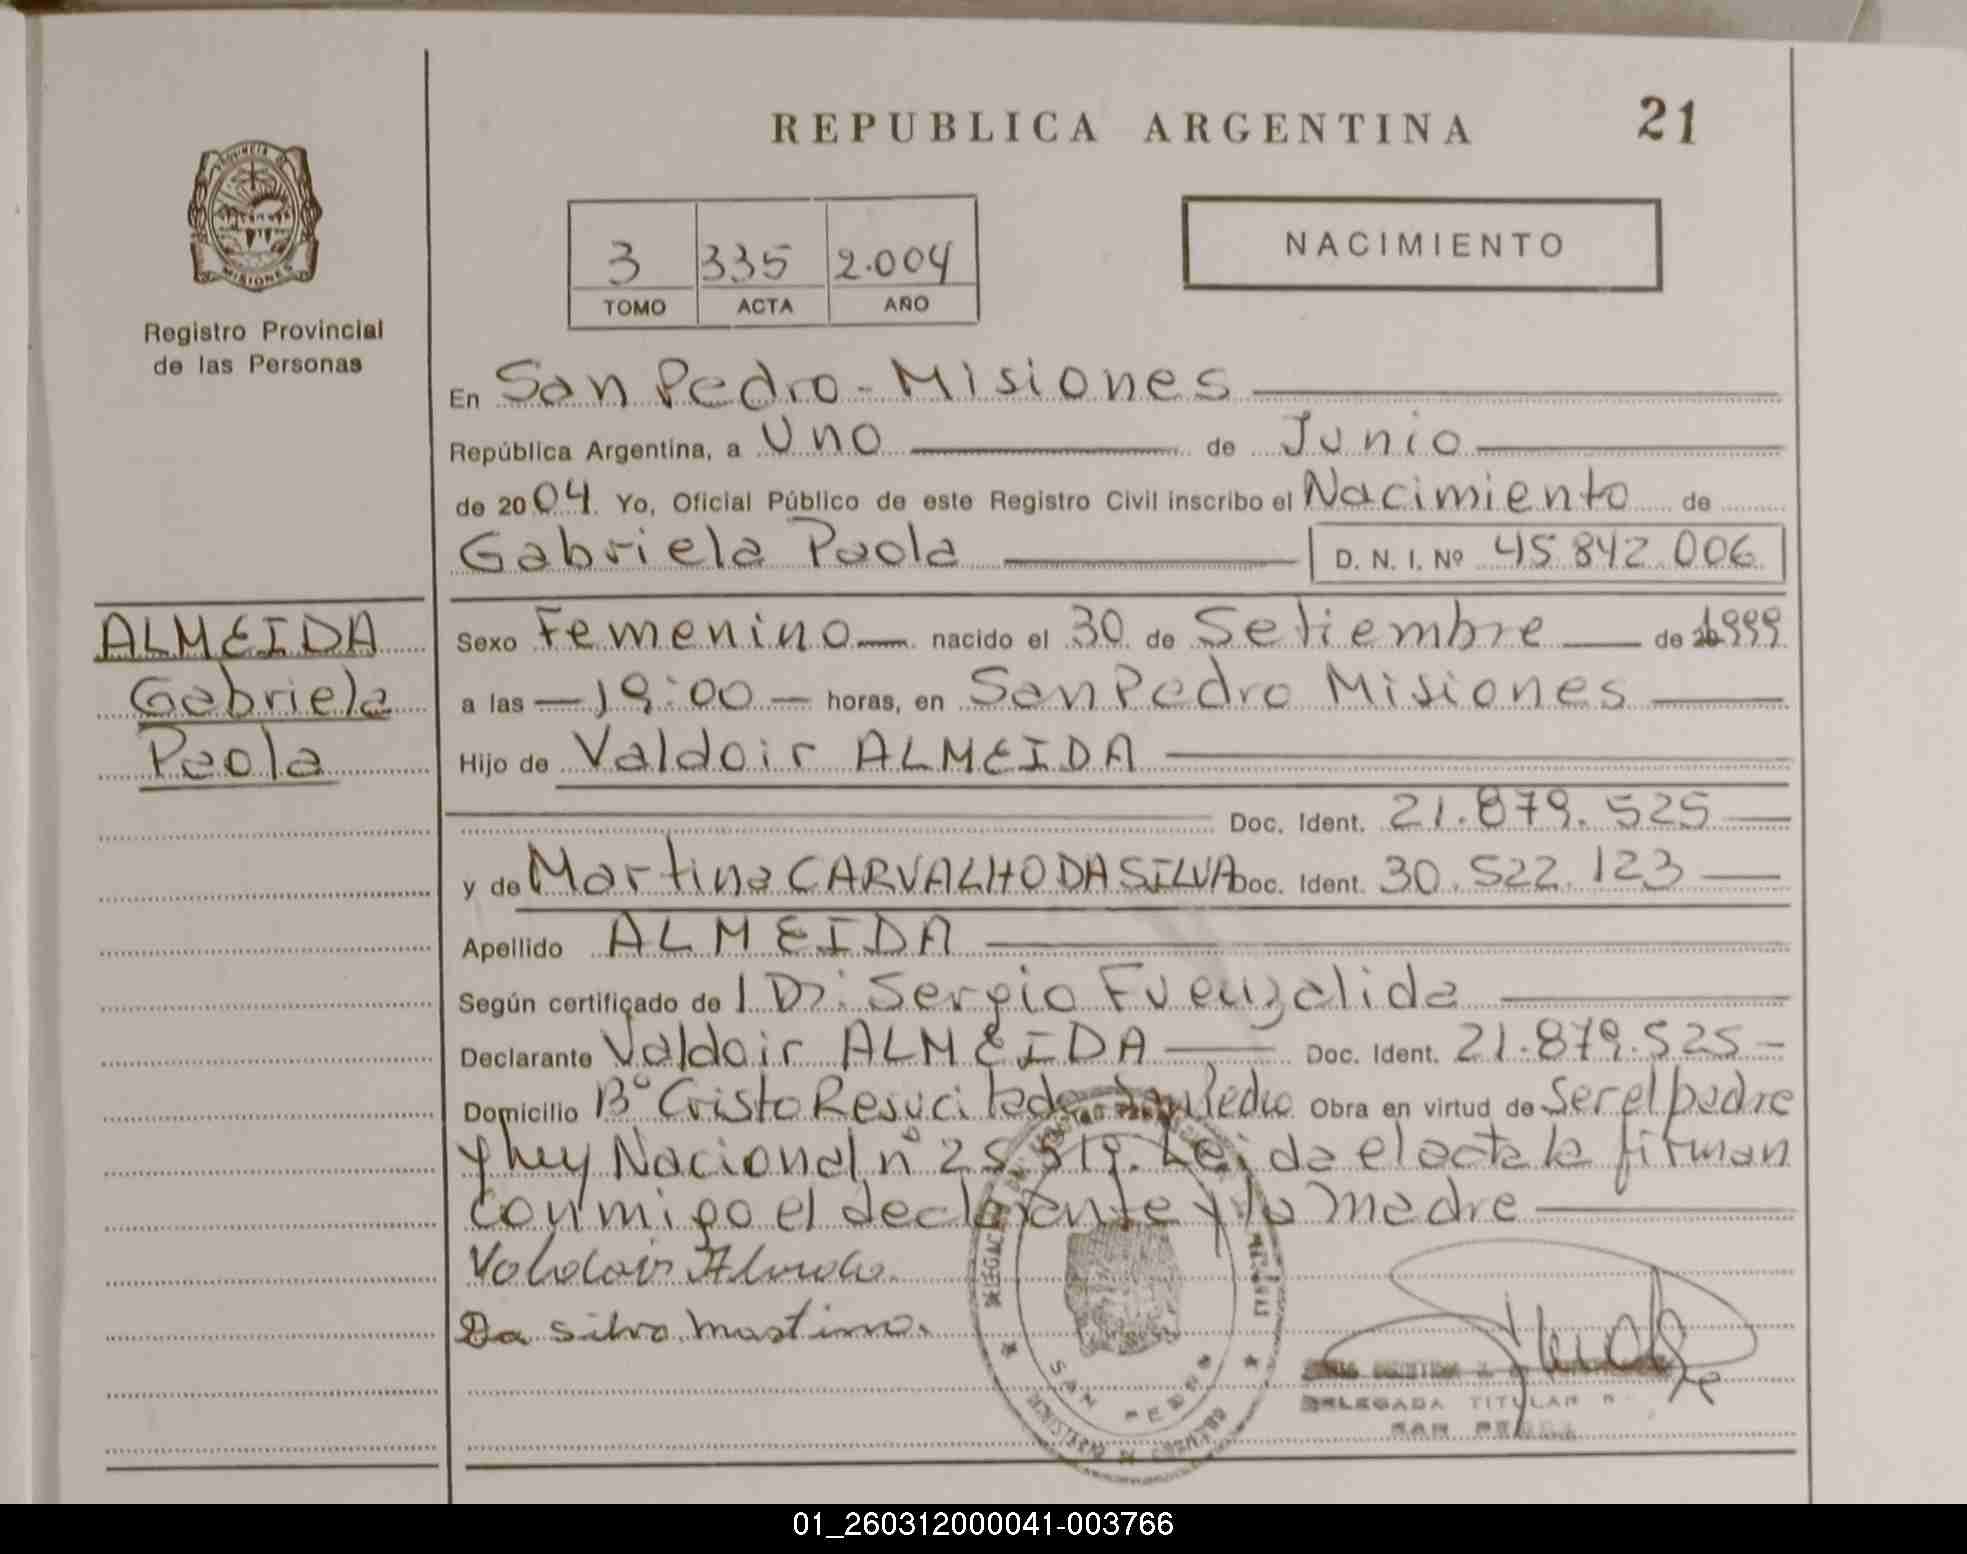 REPUBLICA ARGENTINA 21
PROVINCIA DE
MISIONES
Registro Provincial
de las Personas
3 335 2.004
TOMO ACTA AÑO
NACIMIENTO
En San Pedro - Misiones
República Argentina, a Uno de Junio
de 2004. Yo, Oficial Público de este Registro Civil inscribo el Nacimiento de
Gabriela Paola D. N. I. Nº 45.842.006
ALMEIDA
Gabriela
Paola
Sexo Femenino nacido el 30 de Setiembre de 1999
a las - 19:00 - horas, en San Pedro Misiones
Hijo de Valdoir ALMEIDA
Doc. Ident. 21.879.525
y de Martina CARVALHO DA SILVA Doc. Ident. 30.522.123
Apellido ALMEIDA
Según certificado de l Dr: Sergio Fuenzalida
Declarante Valdoir ALMEIDA Doc. Ident. 21.879.525
Domicilio Bº Cristo Resucitado San Pedro Obra en virtud de Ser el padre
y ley Nacional nº 25.819. Leida el acta la firman
conmigo el declarante y la madre
Valdoir Almeida
Da silva martina.
DELEGADA TITULAR
SAN PEDRO
SAN PEDRO
MINISTERIO DE GOBIERNO
01_260312000041-003766